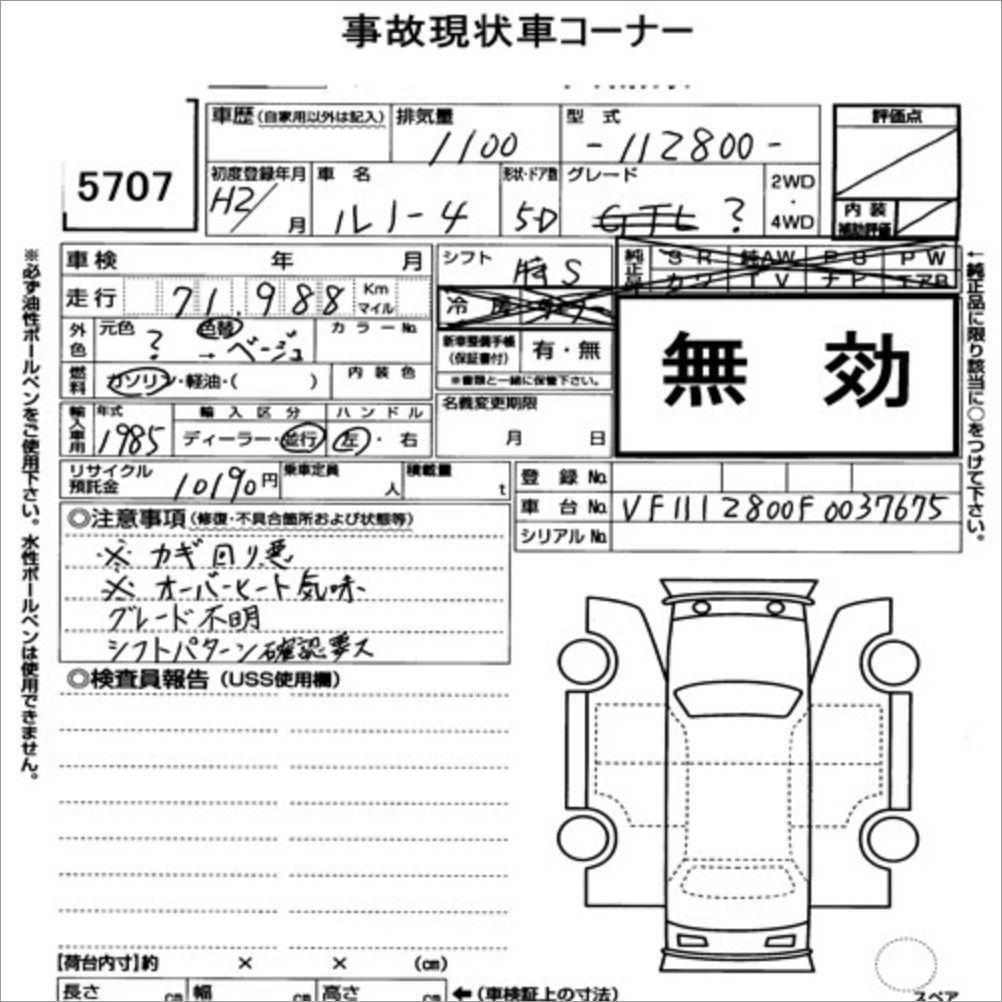 事故現状車コーナー
5707
車歴(自家用以外は記入)
排気量
1100
型式
-112800-
評価点
初度登録年月
H2/ 月
車名
ルノー4
形状・ドア数
5D
グレード
GTL ?
2WD
・
4WD
内装
補助評価
車検 年 月
走行
71,988
Km
マイル
シフト
床S
純正品
SR 純AW PS PW
カワ TV ナビ エアB
冷房
外色
元色
?
色替
→ ベージュ
カラーNo.
新車整備手帳
(保証書付)
有・無
※書類と一緒に保管下さい。
無効
燃料
ガソリン・軽油・( )
内装色
輸入車用
年式
1985
輸入区分
ディーラー・並行
ハンドル
左・右
名義変更期限
月 日
リサイクル
預託金
10190円
乗車定員
人
積載量
t
登録No.
車台No.
VF1112800F0037675
シリアルNo.
◎注意事項(修復・不具合箇所および状態等)
※ カギ回り悪
※ オーバーヒート気味
グレード不明
シフトパターン確認要ス
◎検査員報告(USS使用欄)
※必ず油性ボールペンをご使用下さい。水性ボールペンは使用できません。
←純正品に限り該当に○をつけて下さい。
【荷台内寸】約 × × (cm)
長さ cm 幅 cm 高さ cm ←(車検証上の寸法)
スペア